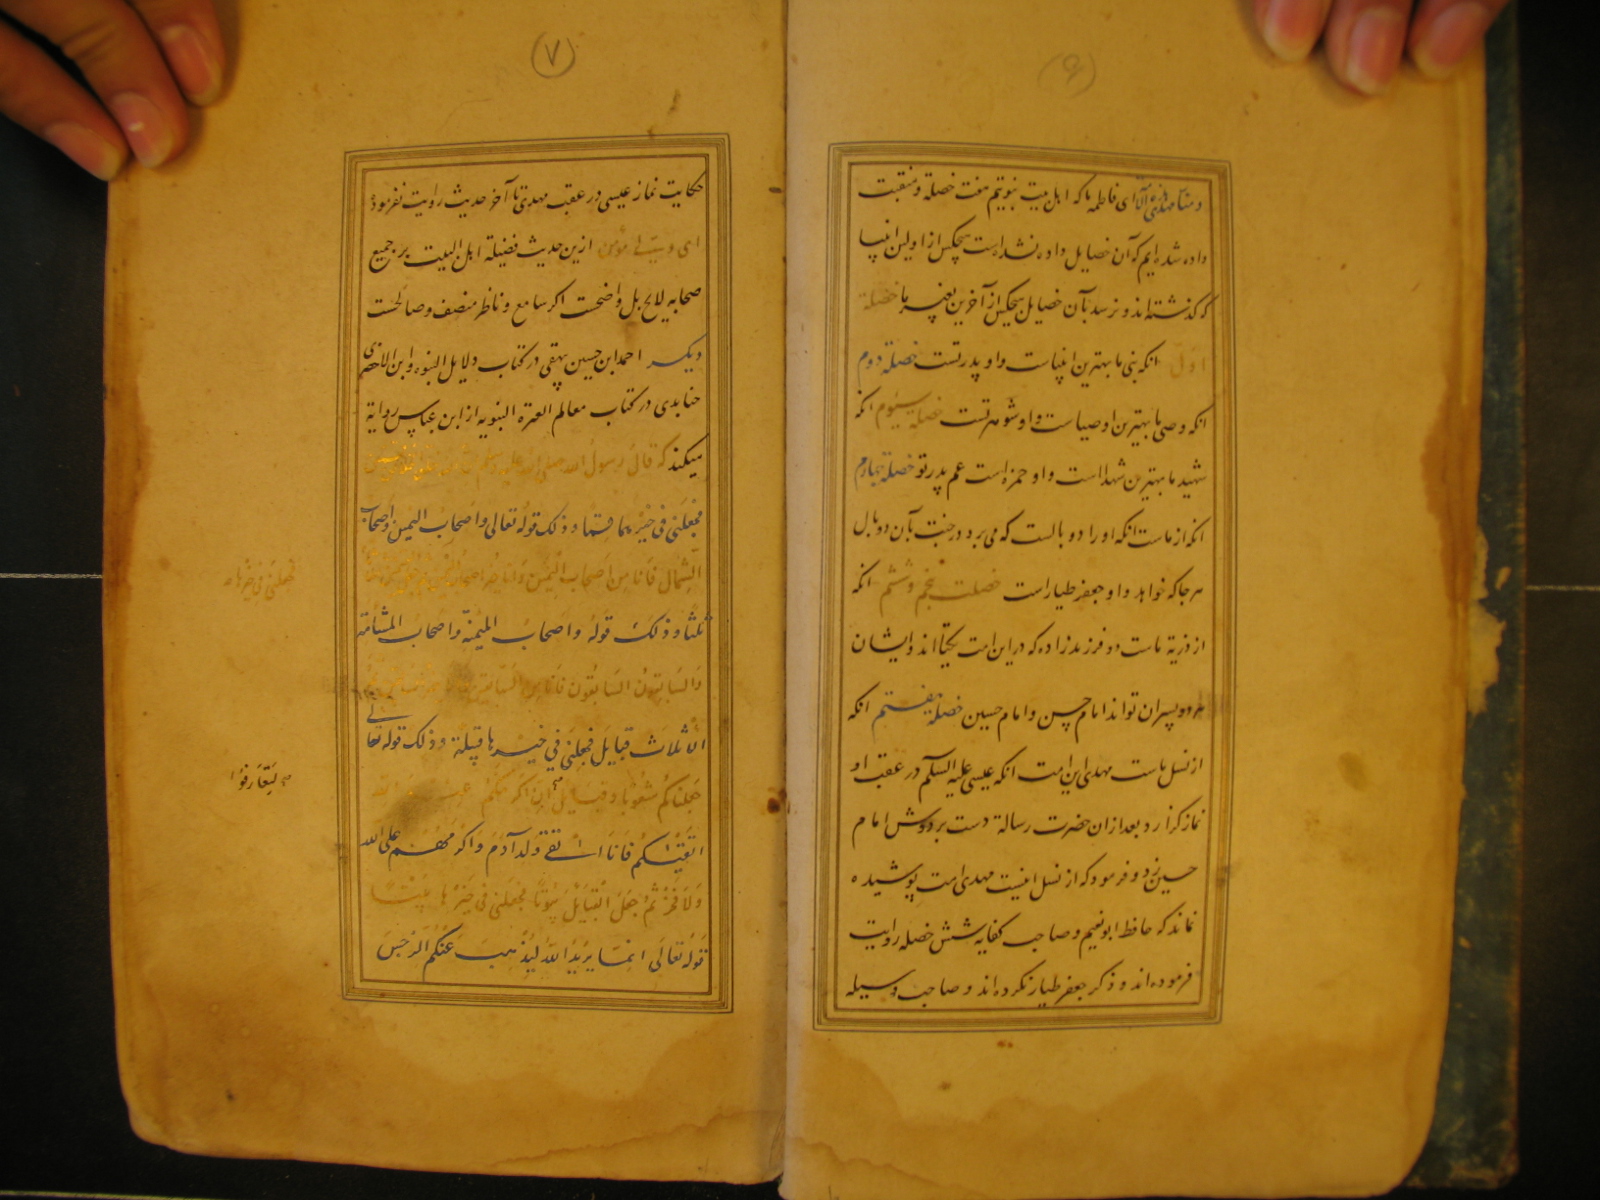 (۶)
ای فاطمه ما که اهل بیت نبوتیم هفت خصلة و منقبت
داده شده ایم که آن خصایل داده نشده است هیچکس از اولین انبیا
که گذشته اند و نرسد بآن خصایل هیچکس از آخرین بغیر ما خصلة
اول انکه نبی ما بهترین انبیاست و او پدر تست خصلة دوم
انکه وصی ما بهترین اوصیاست و او شوهر تست خصلة سیوم انکه
شهید ما بهترین شهدا است و او حمزه است عم پدر تو خصلة چهارم
انکه از ماست انکه او را دو بالست که می برد در جنت بآن دو بال
هر جا که خواهد و او جعفر طیار است خصلت پنجم و ششم انکه
از ذریة ماست دو فرزند زاده که در این امت یکتا اند و ایشان
هر دو پسران تو اند امام حسن و امام حسین خصلة هفتم انکه
از نسل ماست مهدی این امت انکه عیسی علیه السلم در عقب او
نماز گزارد بعد ازان حضرت رسالة دست بر دوش امام
حسین زد و فرمود که از نسل اینست مهدی امت پوشیده
نماند که حافظ ابو نعیم و صاحب کفایه شش خصلة روایت
فرموده اند و ذکر جعفر طیار نکرده اند و صاحب وسیله
(۷)
حکایت نماز عیسی در عقب مهدی تا آخر حدیث روایت نفرموده
ای ازین حدیث فضیلة اهل البیت بر جمیع
صحابه لایح بل واضحست اکر سامع و ناظر منصف و صالحست
دیکر احمد ابن حسین بیهقی در کتاب دلایل النبوه و ابن الاخضر
جنابدی در کتاب معالم العترة النبویه از ابن عباس روایة
میکند که قال رسول الله صلی الله علیه وسلم
فجعلنی فی خیرهما قسما وذلک قوله تعالی واصحاب الیمین واصحاب
الشمال فانا من اصحاب الیمین وانا خیر اصحاب
فجعلنی فی خیرها
ثلثا وذلک قوله واصحاب المیمنة واصحاب المشأمة
والسابقون السابقون فانا من السابقین
الاثلاث قبایل فجعلنی فی خیرها قبیلة وذلک قوله تعالی
جعلناکم شعوبا وقبایل ان اکرمکم عند الله
لتعارفوا
اتقیکم فانا اتقی ولد آدم واکرمهم علی الله
ولا فخر ثم جعل القبایل بیوتا فجعلنی فی خیرها بیتا
قوله تعالی انما یرید الله لیذهب عنکم الرجس